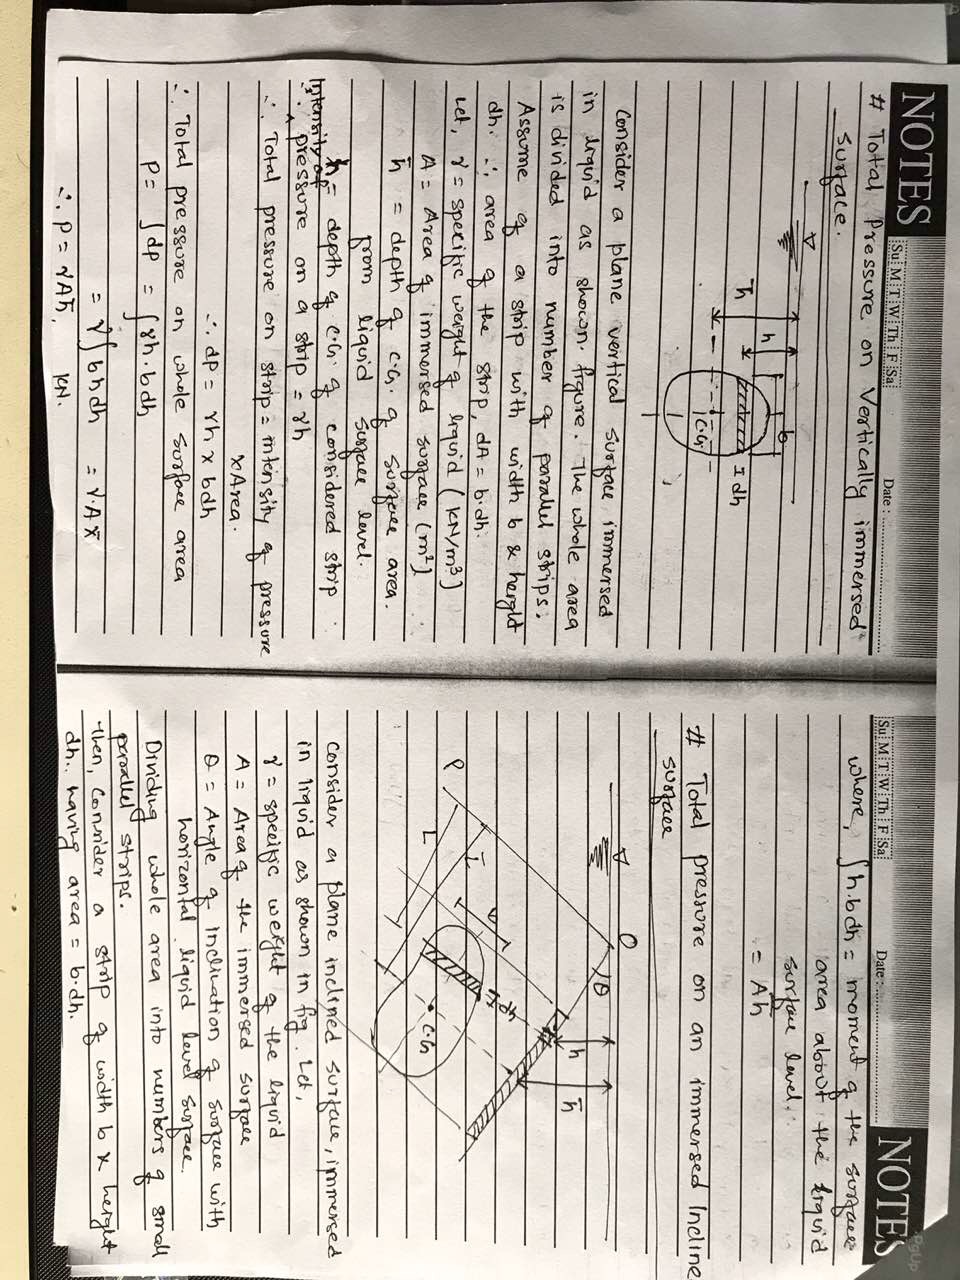 NOTES
Su M T W Th F Sa
Date :
# Total Pressure on Vertically immersed
surface.
h̄
h
b
I dh
C.G.
Consider a plane vertical surface, immersed
in liquid as shown figure. The whole area
is divided into number of parallel strips;
Assume of a strip with width b & height
dh. ∴ area of the strip, dA = b.dh.
Let, γ = specific weight of liquid (kN/m³)
A = Area of immersed surface (m²)
h̄ = depth of C.G. of surface area.
from liquid surface level.
h = depth of C.G. of considered strip
Intensity of
∴ pressure on a strip = γh
∴ Total pressure on strip = intensity of pressure
x Area.
∴ dp = γh x bdh
∴ Total pressure on whole surface area
P = ∫dp = ∫γh.bdh
= γ∫bhdh = γAx̄
∴ P = γAh̄, KN.
Su M T W Th F Sa
Date :
NOTES
PgUp
where, ∫h.bdh = moment of the surface
area about the liquid
surface level.
= Ah̄
# Total pressure on an immersed Incline
surface
O
θ
h
h̄
P
L
L̄
dh
C.G
Consider a plane inclined surface, immersed
in liquid as shown in fig. Let,
γ = specific weight of the liquid
A = Area of the immersed surface
θ = Angle of inclination of surface with
horizontal liquid level surface.
Dividing whole area into numbers of small
parallel strips.
then, consider a strip of width b x height
dh. having area = b.dh.